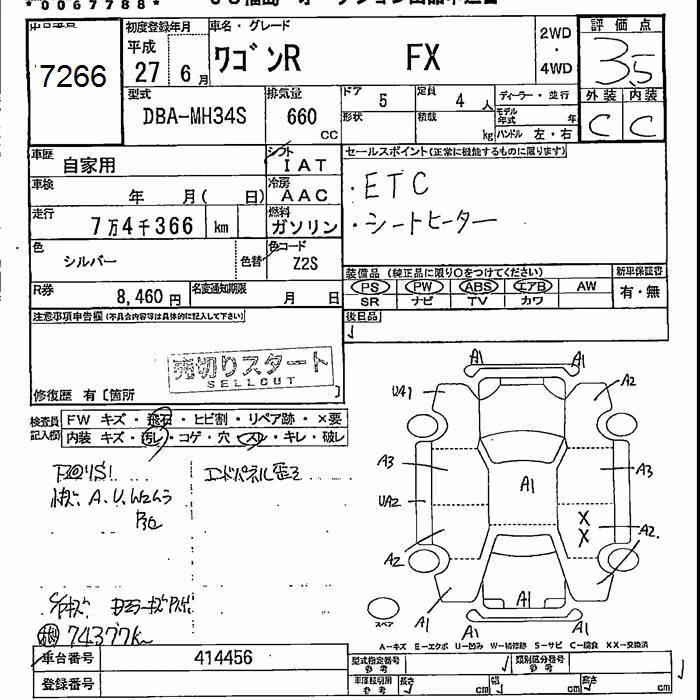 * 0067788 *
7266
初度登録年月 車名・グレード
平成 27 6月 ワゴンR FX
2WD
・
4WD
評価点
3.5
外装 内装
C C
型式 DBA-MH34S
排気量 660 CC
ドア 5 定員 4 人
ディーラー・並行
形状 積載 kg
モデル年式 年
ハンドル 左・右
車歴 自家用
シフト IAT
セールスポイント(正常に機能するものに限ります)
・ETC
・シートヒーター
車検 年 月( 日)
冷房 AAC
走行 7万4千366 km
燃料 ガソリン
色 シルバー 色替
色コード Z2S
R券 8,460円
名変通知期限 月 日
装備品(純正品に限り○をつけてください) 新車保証書
PS PW ABS エアB AW 有・無
SR ナビ TV カワ
後日品
注意事項申告欄(不具合内容等は具体的に記入して下さい)
売切りスタート
SELLOUT
修復歴 有〔箇所 〕
検査員記入欄
FW キズ・飛石・ヒビ割・リペア跡・×要
内装 キズ・汚レ・コゲ・穴・スレ・キレ・破レ
エンドパネル歪ミ
74377K
A1
UA1 A2
A3 A3
A1
UA2
X
X
A2 A2
A1 A1 A1
A1
スペア
A-キズ E-エクボ U-凹み W-補修跡 S-サビ C-腐食 XX-交換済
車台番号 414456
型式指定番号 参考 類別区分番号 参考
登録番号
車庫証明用 参考 長さ cm 幅 cm 高さ cm